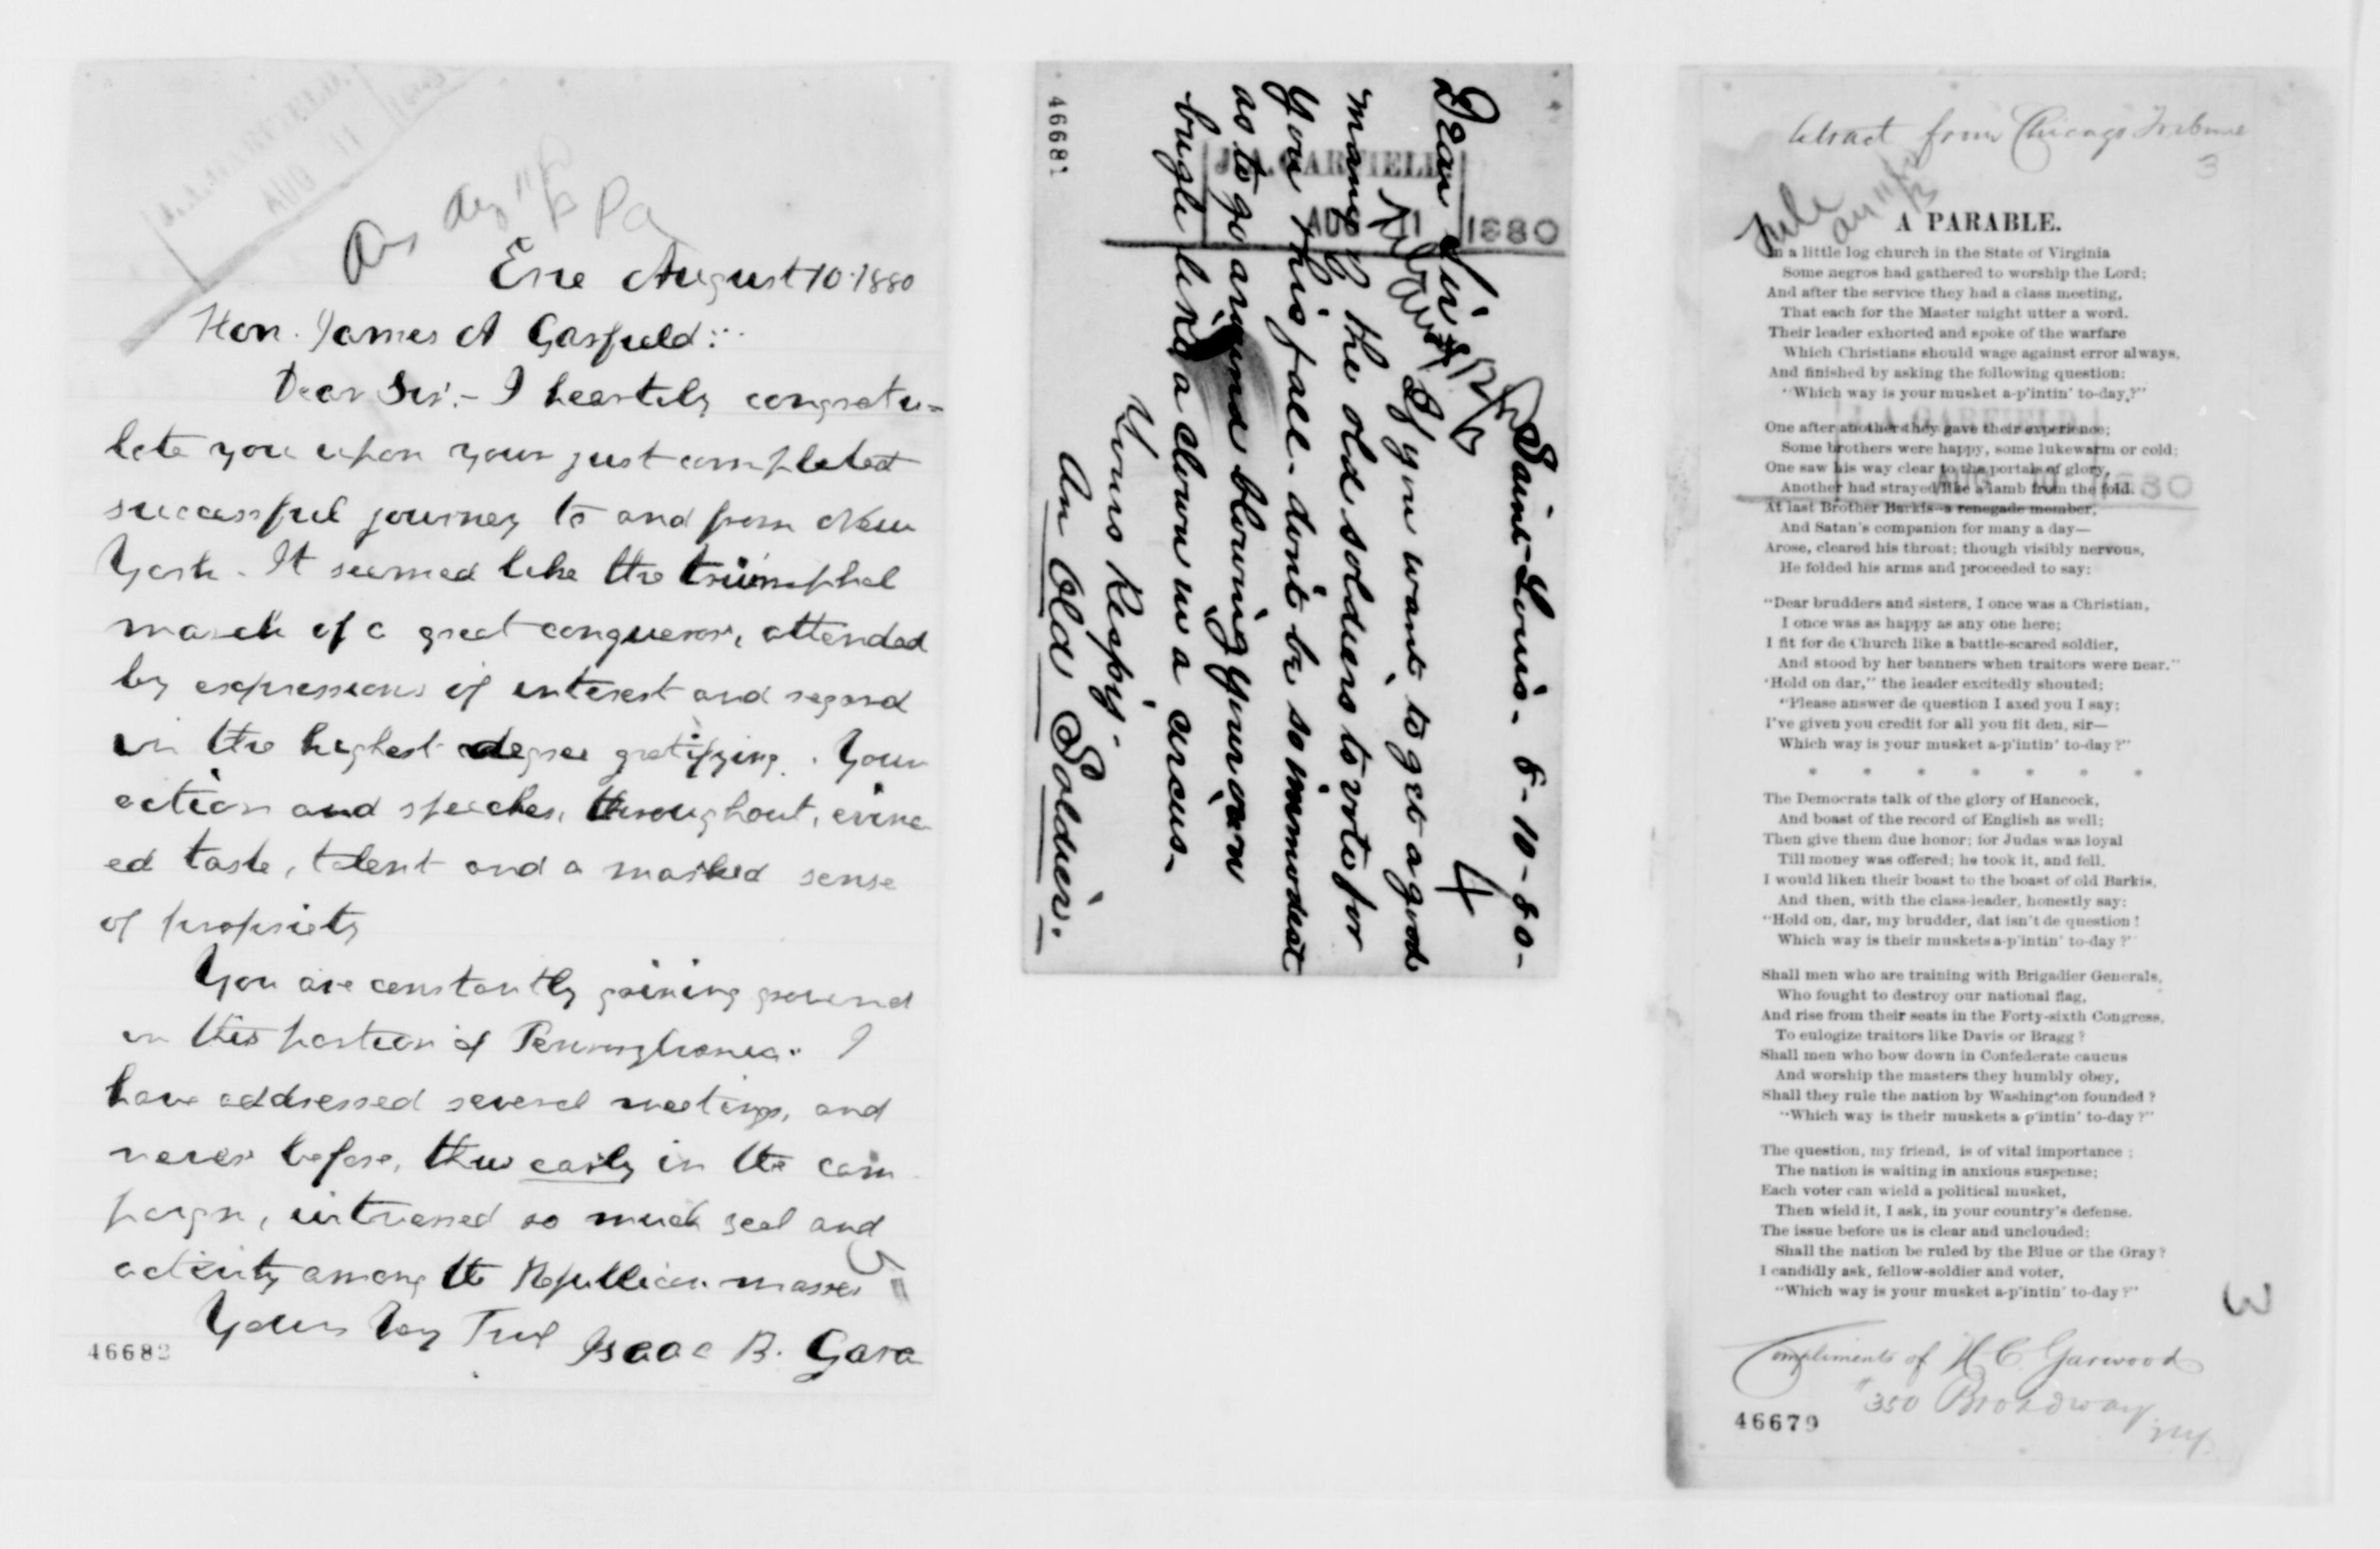 J. A. GARFIELD.
AUG 11 1880
Ans Aug 11/80 Pa
Erie August 10. 1880
Hon. James A Garfield:
Dear Sir:- I heartily congratu-
late you upon your just completed
successful journey to and from New
York. It seemed like the triumphal
march of a great conqueror, attended
by expressions of interest and regard
in the highest degree gratifying. Your
action and speeches, throughout, evinc
ed taste, talent and a marked sense
of propriety
You are constantly gaining ground
in this portion of Pennsylvania. I
have addressed several meetings, and
never before, thus early in the cam
paign, witnessed so much zeal and
activity among the Republican masses
Yours Very Truly Isaac B. Gara
46682
Saint-Louis. 8-10-80-
4
Dear Sir
If you want to get a good
many of the old soldiers to vote for
you this fall- dont be so immodest
as to go around blowing your own
bugle like a clown in a circus.
Yours Respy.
An Old Soldier.
J. A. GARFIELD
AUG 11 1880
46681
Extract from Chicago Tribune
3
File
Aug 11/80
A PARABLE.
In a little log church in the State of Virginia
Some negros had gathered to worship the Lord;
And after the service they had a class meeting,
That each for the Master might utter a word.
Their leader exhorted and spoke of the warfare
Which Christians should wage against error always,
And finished by asking the following question:
"Which way is your musket a-p'intin' to-day?"
J. A. GARFIELD
One after another they gave their experience;
Some brothers were happy, some lukewarm or cold;
One saw his way clear to the portals of glory,
Another had strayed like a lamb from the fold.
AUG 10 1880
At last Brother Barkis—a renegade member,
And Satan's companion for many a day—
Arose, cleared his throat; though visibly nervous,
He folded his arms and proceeded to say:
"Dear brudders and sisters, I once was a Christian,
I once was as happy as any one here;
I fit for de Church like a battle-scared soldier,
And stood by her banners when traitors were near."
'Hold on dar," the leader excitedly shouted;
"Please answer de question I axed you I say;
I've given you credit for all you fit den, sir—
Which way is your musket a-p'intin' to-day?"
* * * * * * *
The Democrats talk of the glory of Hancock,
And boast of the record of English as well;
Then give them due honor; for Judas was loyal
Till money was offered; he took it, and fell.
I would liken their boast to the boast of old Barkis,
And then, with the class-leader, honestly say:
"Hold on, dar, my brudder, dat isn't de question!
Which way is their muskets a-p'intin' to-day?"
Shall men who are training with Brigadier Generals,
Who fought to destroy our national flag,
And rise from their seats in the Forty-sixth Congress,
To eulogize traitors like Davis or Bragg?
Shall men who bow down in Confederate caucus
And worship the masters they humbly obey,
Shall they rule the nation by Washington founded?
"Which way is their muskets a p'intin' to-day?"
The question, my friend, is of vital importance;
The nation is waiting in anxious suspense;
Each voter can wield a political musket,
Then wield it, I ask, in your country's defense.
The issue before us is clear and unclouded;
Shall the nation be ruled by the Blue or the Gray?
I candidly ask, fellow-soldier and voter,
"Which way is your musket a-p'intin' to-day?"
3
Compliments of H C Garwood
350 Broadway
NY
46679